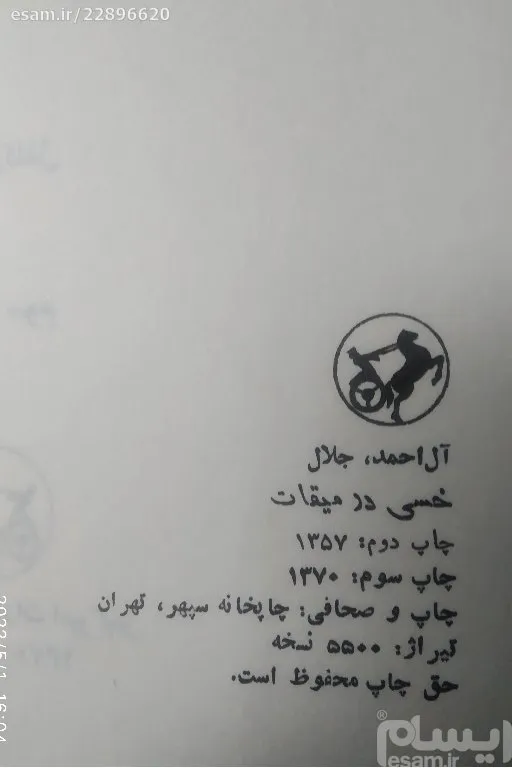 esam.ir/22896620
آل‌احمد، جلال
خسی در میقات
چاپ دوم: ۱۳۵۷
چاپ سوم: ۱۳۷۰
چاپ و صحافی: چاپخانه سپهر، تهران
تیراژ: ۵۵۰۰ نسخه
حق چاپ محفوظ است.
ایسام®
esam.ir